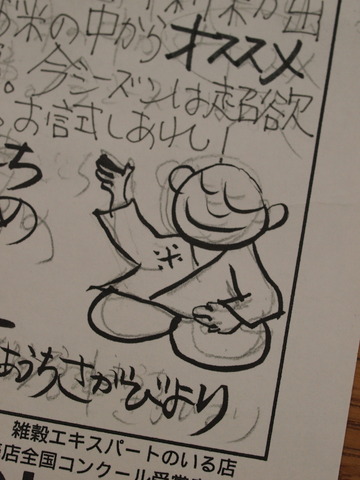 新米が出
お米の中からオススメ
。今シーズンは超欲
。お試しあれし!
ち
の
米
おうちさがびより
雑穀エキスパートのいる店
店全国コンクール受賞